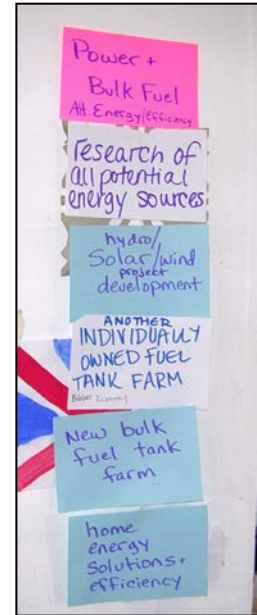 Power +
Bulk Fuel
Alt. Energy/Efficiency
research of
all potential
energy sources
hydro/
Solar/wind
project
development
ANOTHER
INDIVIDUALLY
OWNED FUEL
TANK FARM
Economy
New bulk
fuel tank
farm
home
energy
solutions +
efficiency